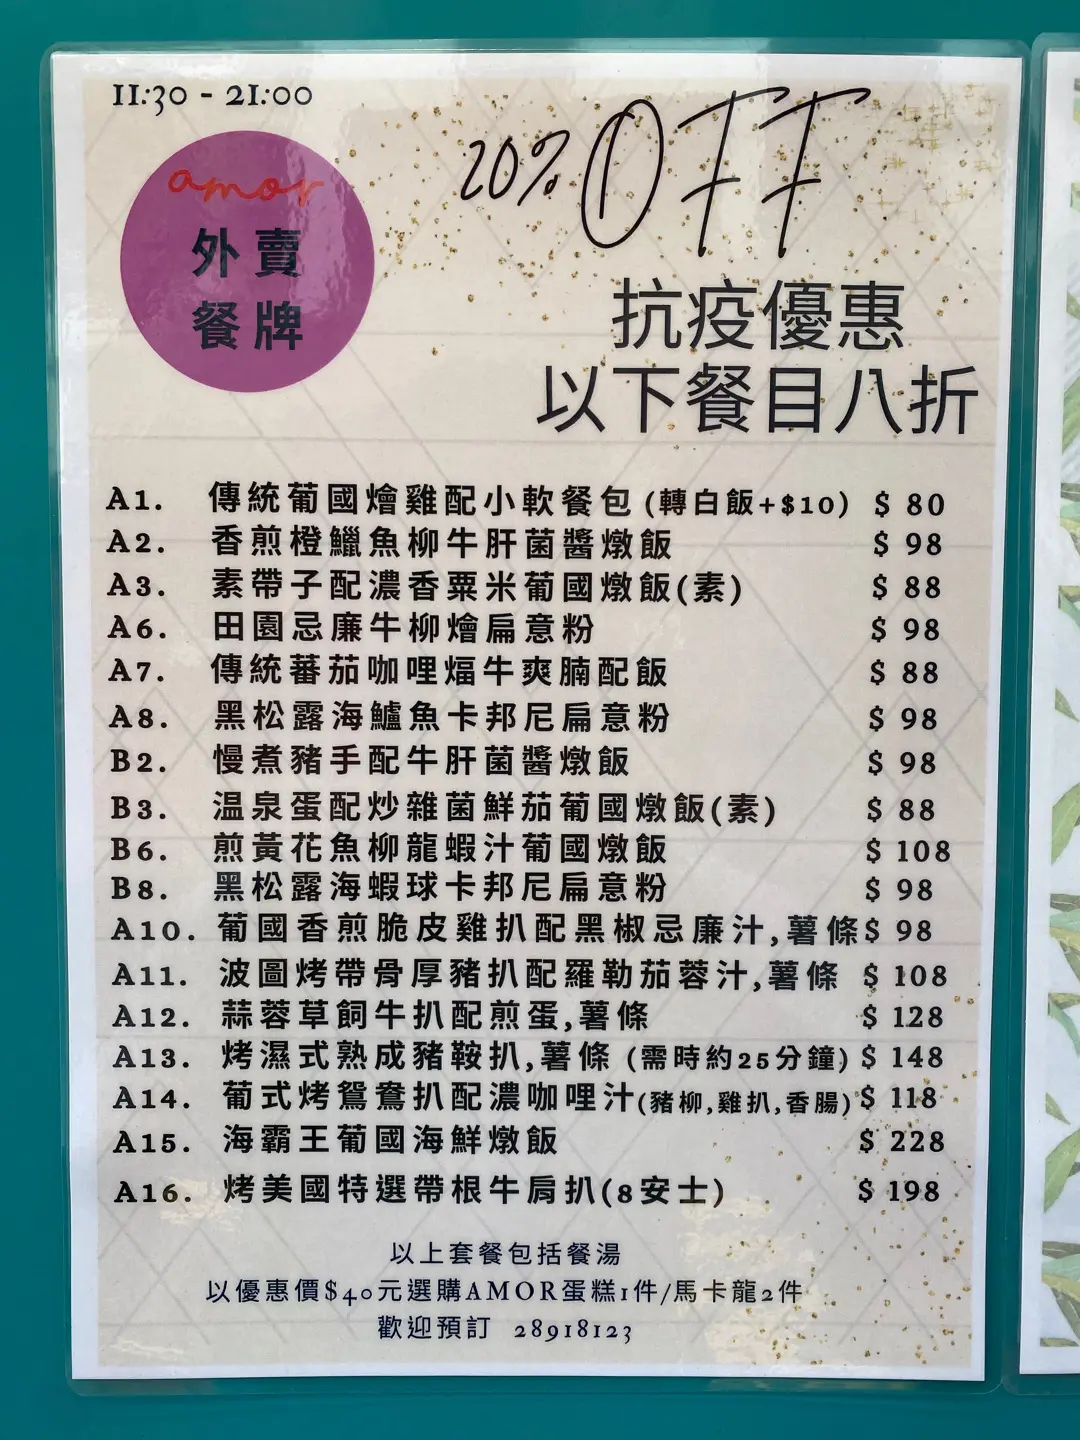 11:30 - 21:00
20% OFF
amor
外賣
餐牌
抗疫優惠
以下餐目八折
A1. 傳統葡國燴雞配小軟餐包 (轉白飯+$10) $ 80
A2. 香煎橙鱲魚柳牛肝菌醬燉飯 $ 98
A3. 素帶子配濃香粟米葡國燉飯(素) $ 88
A6. 田園忌廉牛柳燴扁意粉 $ 98
A7. 傳統蕃茄咖哩煏牛爽腩配飯 $ 88
A8. 黑松露海鱸魚卡邦尼扁意粉 $ 98
B2. 慢煮豬手配牛肝菌醬燉飯 $ 98
B3. 温泉蛋配炒雜菌鮮茄葡國燉飯(素) $ 88
B6. 煎黃花魚柳龍蝦汁葡國燉飯 $ 108
B8. 黑松露海蝦球卡邦尼扁意粉 $ 98
A10. 葡國香煎脆皮雞扒配黑椒忌廉汁,薯條 $ 98
A11. 波圖烤帶骨厚豬扒配羅勒茄蓉汁,薯條 $ 108
A12. 蒜蓉草飼牛扒配煎蛋,薯條 $ 128
A13. 烤濕式熟成豬鞍扒,薯條 (需時約25分鐘) $ 148
A14. 葡式烤鴛鴦扒配濃咖哩汁(豬柳,雞扒,香腸) $ 118
A15. 海霸王葡國海鮮燉飯 $ 228
A16. 烤美國特選帶根牛肩扒(8安士) $ 198
以上套餐包括餐湯
以優惠價$40元選購AMOR蛋糕1件/馬卡龍2件
歡迎預訂 28918123